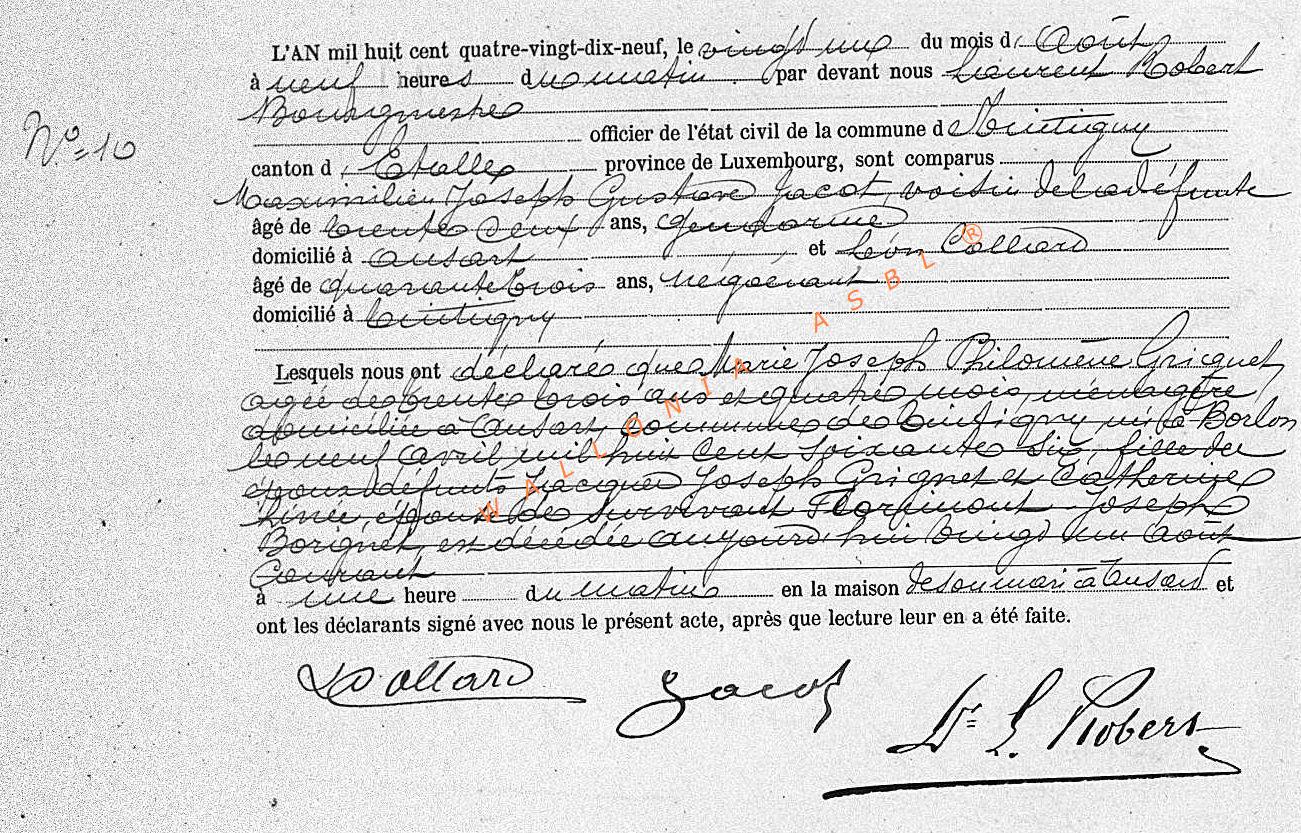 L'AN mil huit cent quatre-vingt-dix-neuf, le vingt un du mois d'Août
à neuf heures du matin par devant nous Laurent Robert
Bourgmestre
N° = 10
officier de l'état civil de la commune de Tintigny
canton d'Etalle province de Luxembourg, sont comparus
Maximilien Joseph Gustave Jacot, voisin de la défunte
âgé de trente deux ans, gendarme
domicilié à Ansart et Léon Collard
âgé de quarante trois ans, négociant
domicilié à Tintigny
Lesquels nous ont déclaré que Marie Joseph Philomène Gricquet
agée de trente trois ans et quatre mois, ménagère
domiciliée à Ansart, commune de Tintigny, née à Borlon
le neuf avril mil huit cent soixante six, fille des
époux défunts Jacques Joseph Grignet et Catherine
épouse de survivant Florimont Joseph
Borignet, est décédée aujourd'hui vingt un août
courant
à une heure du matin en la maison de son mari à Ansard et
ont les déclarants signé avec nous le présent acte, après que lecture leur en a été faite.
L Collard Jacot Dr L. Robert
WALLONIA ASBL ®